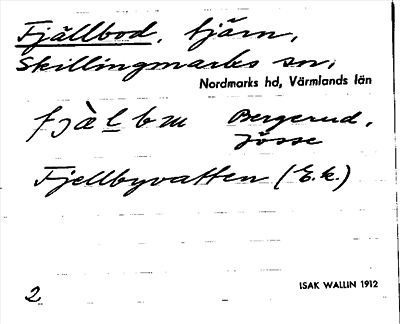 Fjällbod, tjärn,
Skillingmarks sn,
Nordmarks hd, Värmlands län
fjàlbm Bergerud,
Jösse
Fjellbyvatten (E.k.)
2
ISAK WALLIN 1912